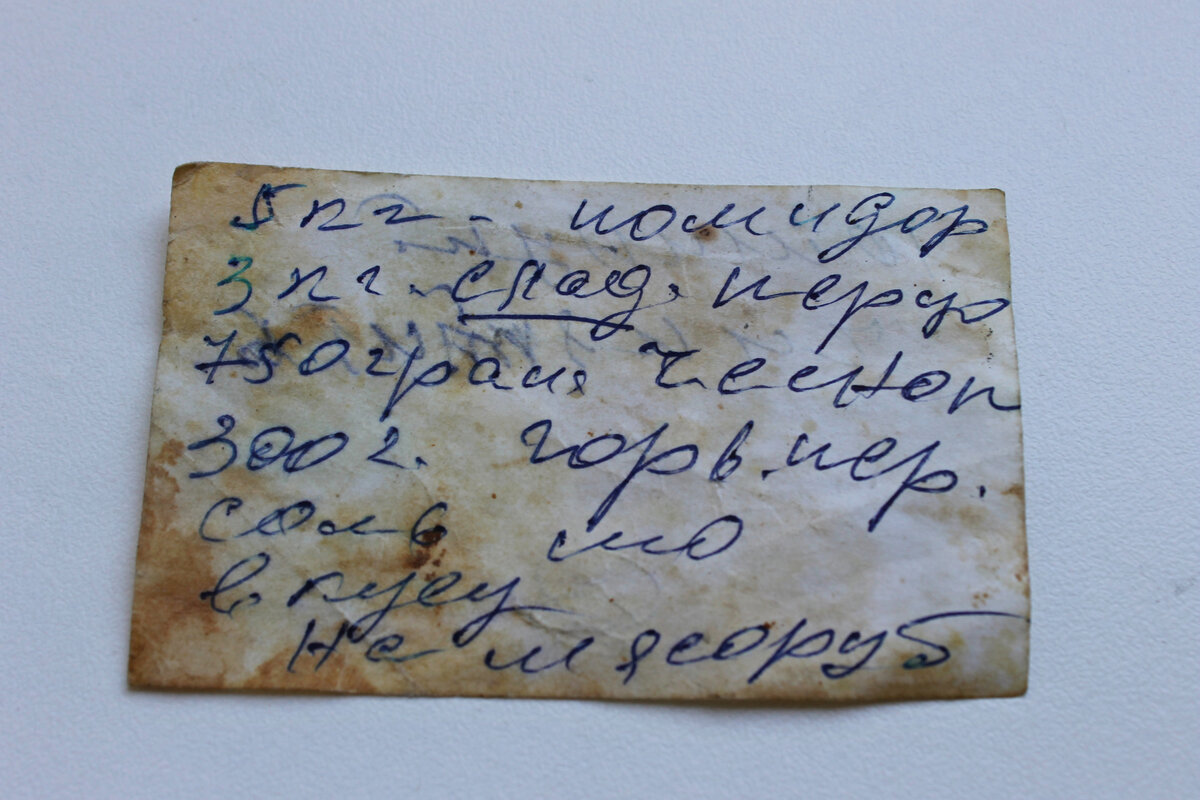 5 кг - помидор
3 кг. слад. перца
750 грам. чеснок
300 г. горьв. пер.
соль по
вкусу
на мясоруб